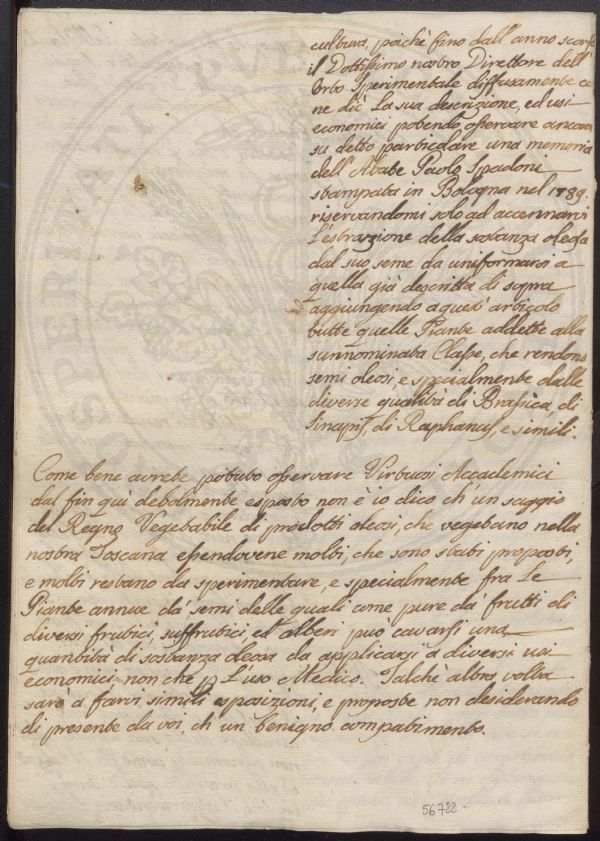 cultura, poichè fino dall'anno scorso
il Dottissimo nostro Direttore dell'
Orto Sperimentale diffusamente ce
ne diè La sua descrizione, ed usi
economici potendo osservare ancora
su detto particolare una memoria
dell'Abate Paolo Spadoni
stampata in Bologna nel 1789.
riservandomi solo ad accennarvi
L'estrazione della sostanza oleosa
dal suo seme da uniformarsi a
quella già descritta di sopra
aggiungendo a quest'articolo
tutte quelle Piante addette alla
sunnominata Classe, che rendono
semi oleosi, e specialmente dalle
diverse qualità di Brassica, di
Sinapis, di Raphanus, e simili.
Come bene avrete potuto osservare Virtuosi Accademici
dal fin quì debolmente esposto non è io dico ch un saggio
del Regno Vegetabile di prodotti oleosi, che vegetano nella
nostra Toscana essendovene molti, che sono stati proposti,
e molti restano da sperimentare, e specialmente fra Le
Piante annue da' semi delle quali come pure da' frutti di
diversi frutici, suffrutici, ed alberi può cavarsi una
quantità di sostanza oleosa da applicarsi a diversi usi
economici, non che p L'uso Medico. Talchè altra volta
sarò a farvi simili esposizioni, e proposte non desiderando
di presente da voi, ch un benigno compatimento.
56788